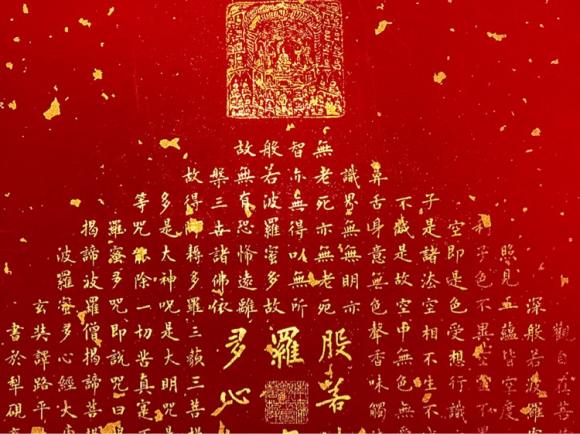 觀自在菩
深般若波羅
照見五蘊皆空度
利子色不異空
空即是色受想行識
子是諸法空相不生不
不減是故空中無色無受
鼻舌身意無色聲香味觸
識界無無明亦
無老死亦無老死
智亦無得以無所
般若波羅蜜多故
故無有恐怖遠離
槃三世諸佛依
故得阿耨多羅三藐三菩提
多是大神咒是大明咒是
等咒能除一切苦真實不
羅蜜多咒即說咒曰揭
揭諦波羅僧揭諦菩提
波羅蜜多心經大
玄奘譯路平
書於犁硯
般若
羅
多心